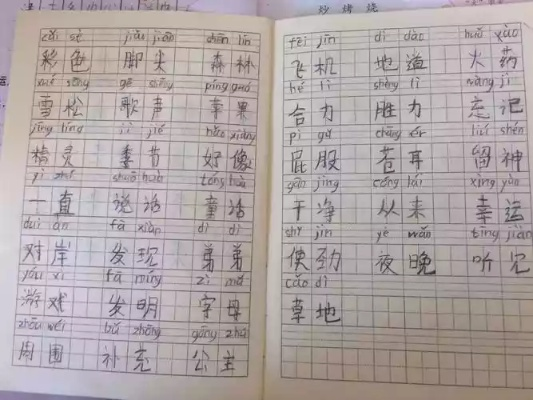 cǎi sè jiǎo jiān sēn lín
彩色 脚尖 森林
xuě sōng gē shēng píng guǒ
雪松 歌声 苹果
jīng líng jì jié hǎo xiàng
精灵 季节 好像
yì zhí shuō huà tóng huà
一直 说话 童话
duì àn fā xiàn dì di
对岸 发现 弟弟
yóu xì fā míng zì mǔ
游戏 发明 字母
zhōu wéi bǔ chōng gōng zhǔ
周围 补充 公主
fēi jī dì dào huǒ yào
飞机 地道 火药
hé lì shèng lì wàng jì
合力 胜力 忘记
pì gu cāng ěr liú shén
屁股 苍耳 留神
gān jìng cóng lái xìng yùn
干净 从来 幸运
shǐ jìn yè wǎn tīng jiàn
使劲 夜晚 听见
cǎo dì
草地